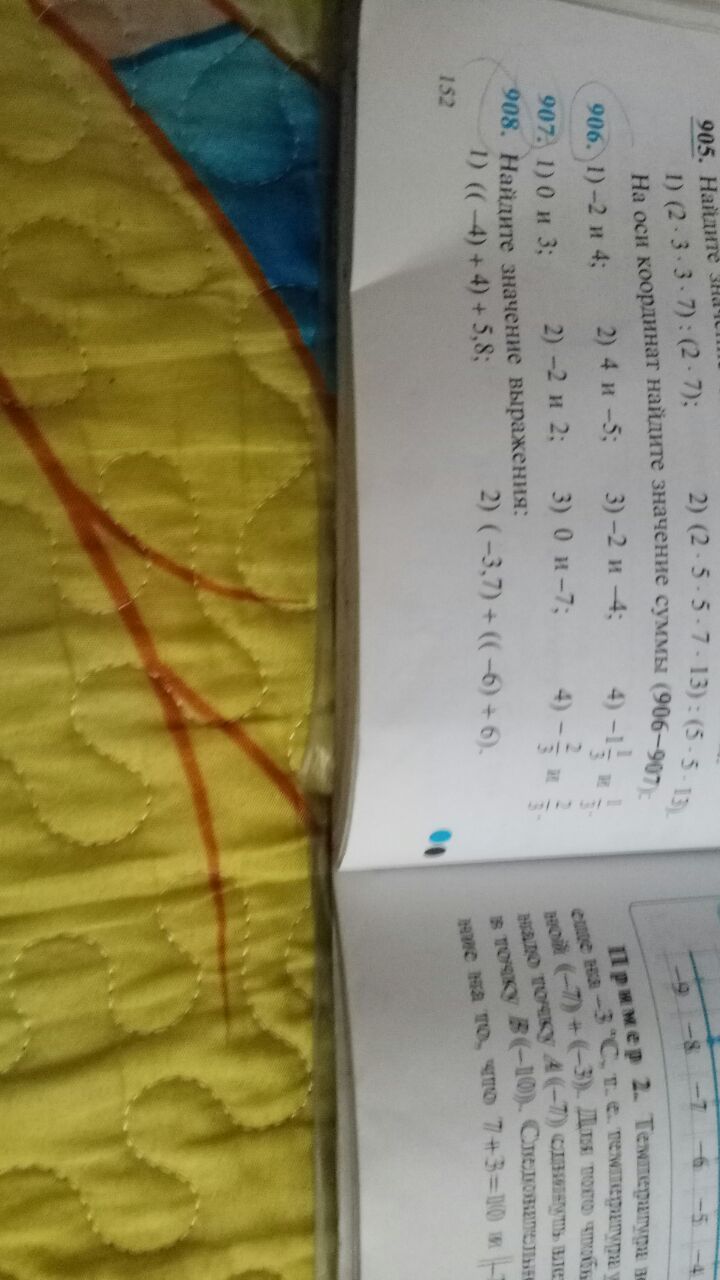 905. Найдите
1) (2 · 3 · 3 · 7) : (2 · 7); 2) (2 · 5 · 5 · 7 · 13) : (5 · 5 · 13).
На оси координат найдите значение суммы (906—907):
906. 1) –2 и 4; 2) 4 и –5; 3) –2 и –4; 4) –1 1/3 и 1/3.
907. 1) 0 и 3; 2) –2 и 2; 3) 0 и –7; 4) – 2/3 и 2/3.
908. Найдите значение выражения:
1) (( –4) + 4) + 5,8; 2) ( –3,7) + (( –6) + 6).
152
–9 –8 –7 –6 –5 –4
Пример 2. Температура в
еще на –3 °C, т. е. температура
ной ((–7) + (–3)). Для того чтобы
надо точку A((–7)) сдвинуть
в точку B((–10)).
ние на то, что 7 + 3 = 10 и